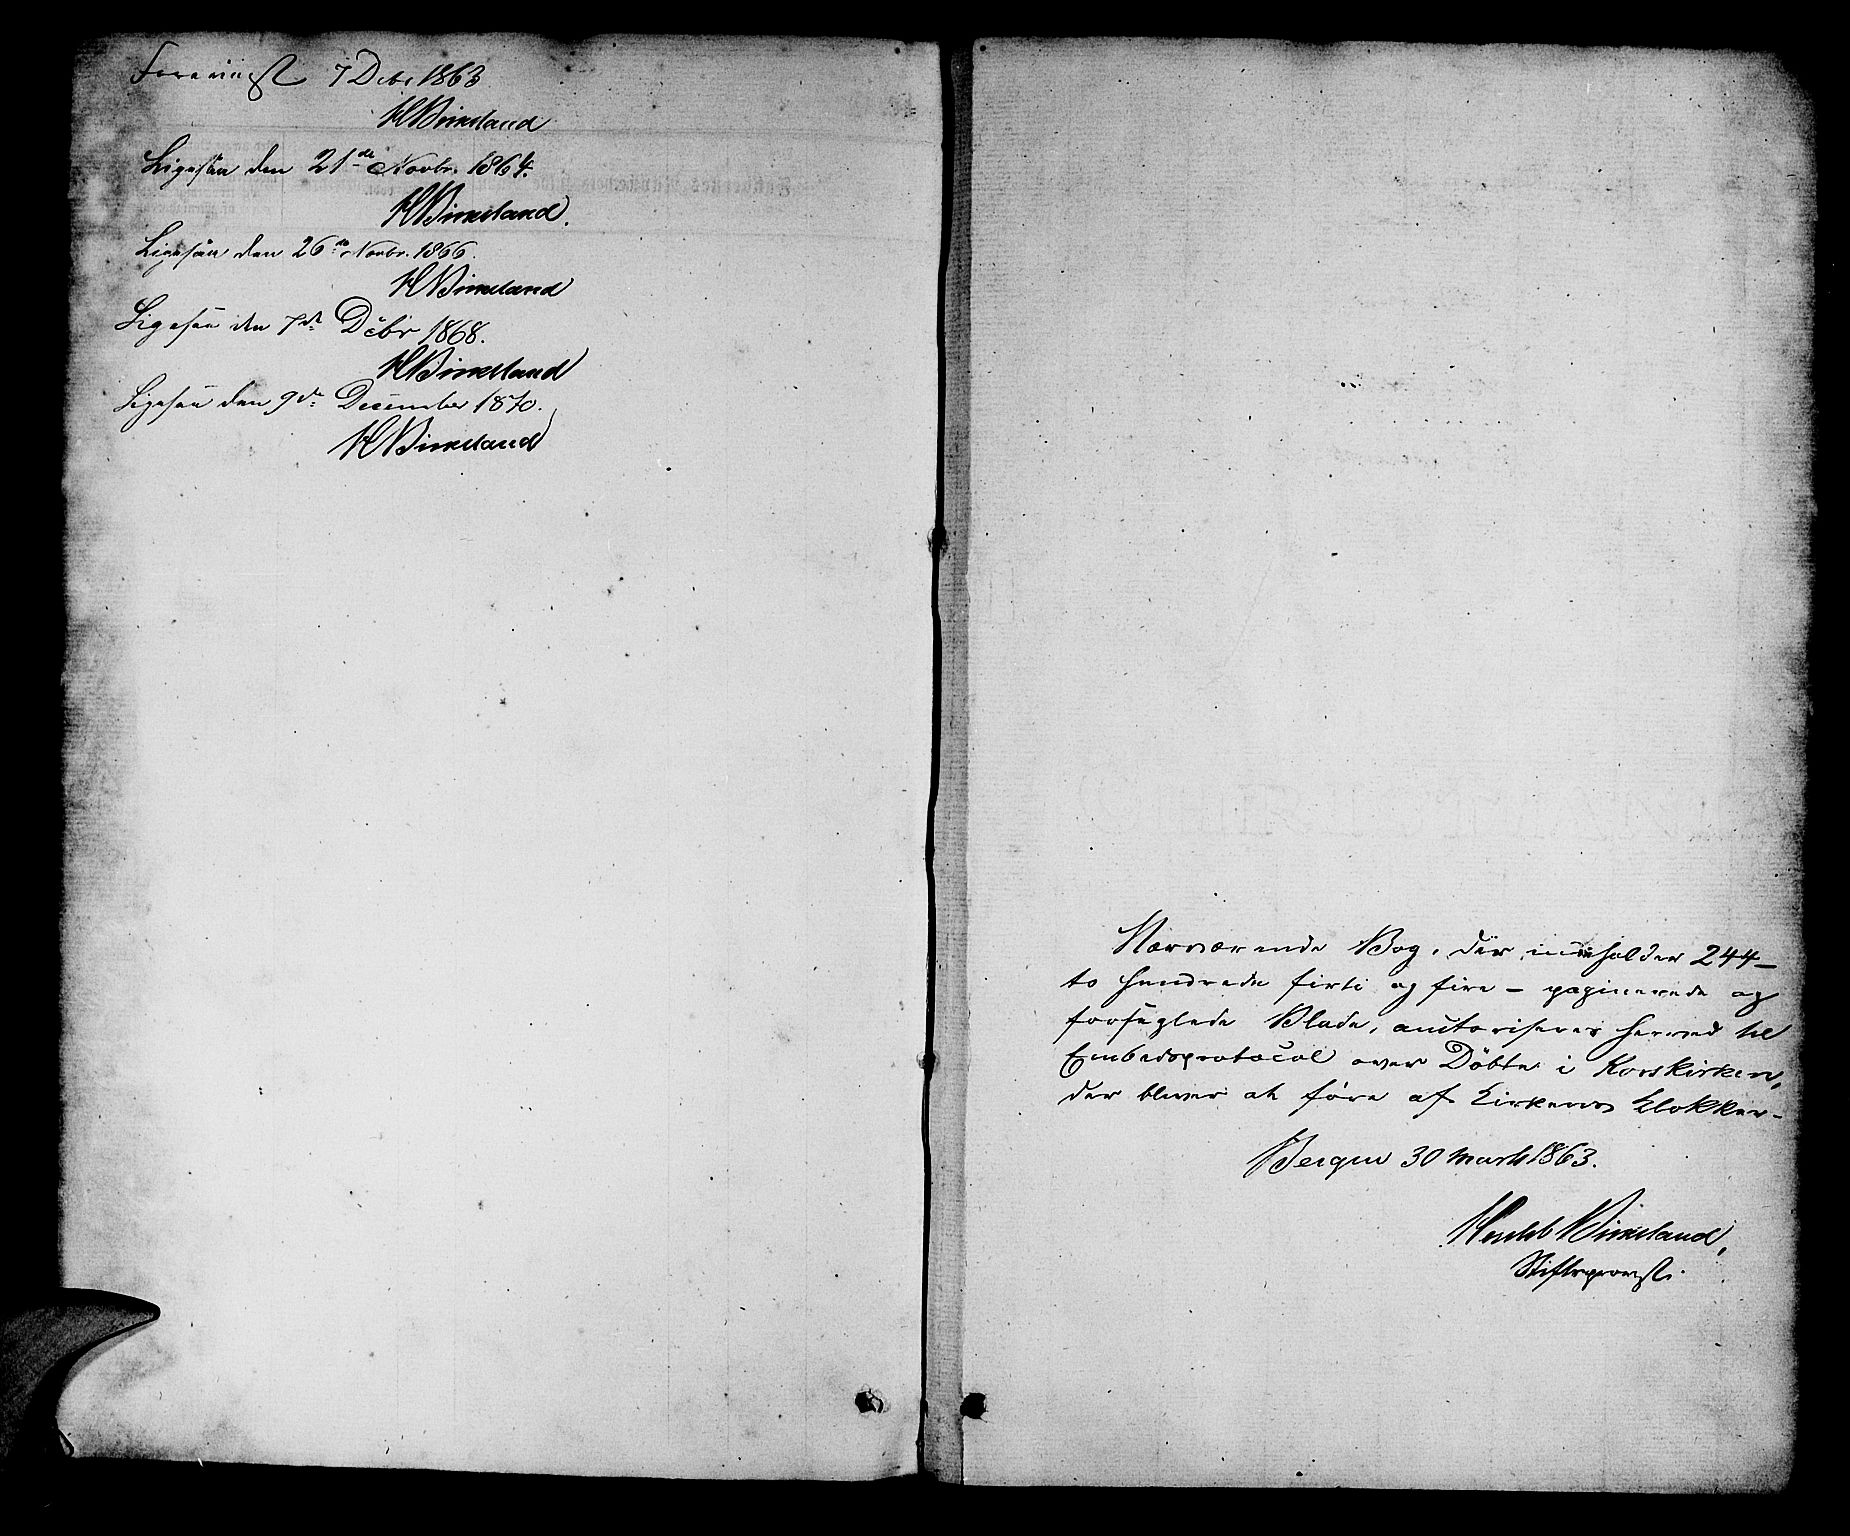 Foreviist 7 Debr 1863
HBirkeland
Ligesaa den 21de Novbr. 1864.
HBirkeland.
Ligesaa den 26de Novbr. 1866.
HBirkeland
Ligesaa den 7de Decbr 1868.
HBirkeland
Ligesaa den 9de December 1870.
HBirkeland
Nærværende Bog, der indeholder 244 –
to hundrede firti og fire – paginerede og
forseglede Blade, auctoriseres herved til
Embedsprotocol over Döbte i Korskirken,
der bliver at före af Kirkens Klokker –
Bergen 30 Marts 1863.
Birkeland,
Stiftsprovst.